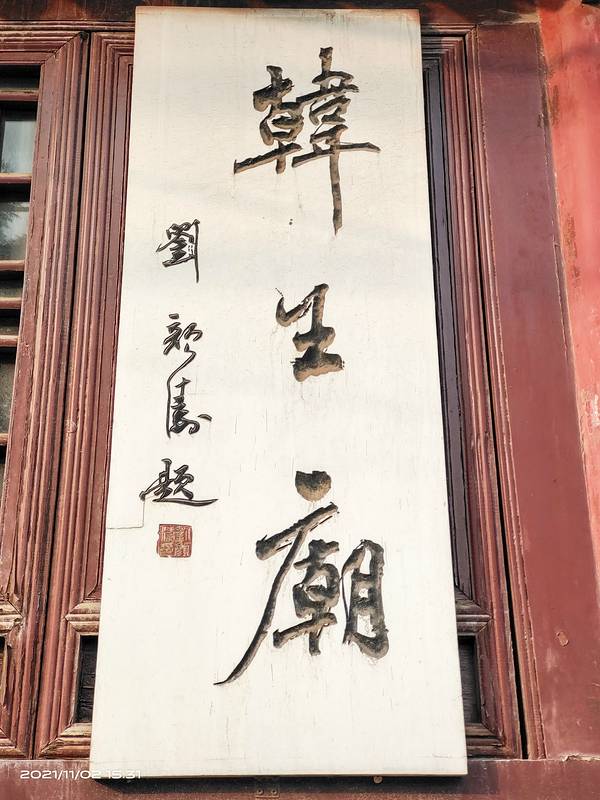 韓生廟
劉顏濤題
2021/11/02 15:31